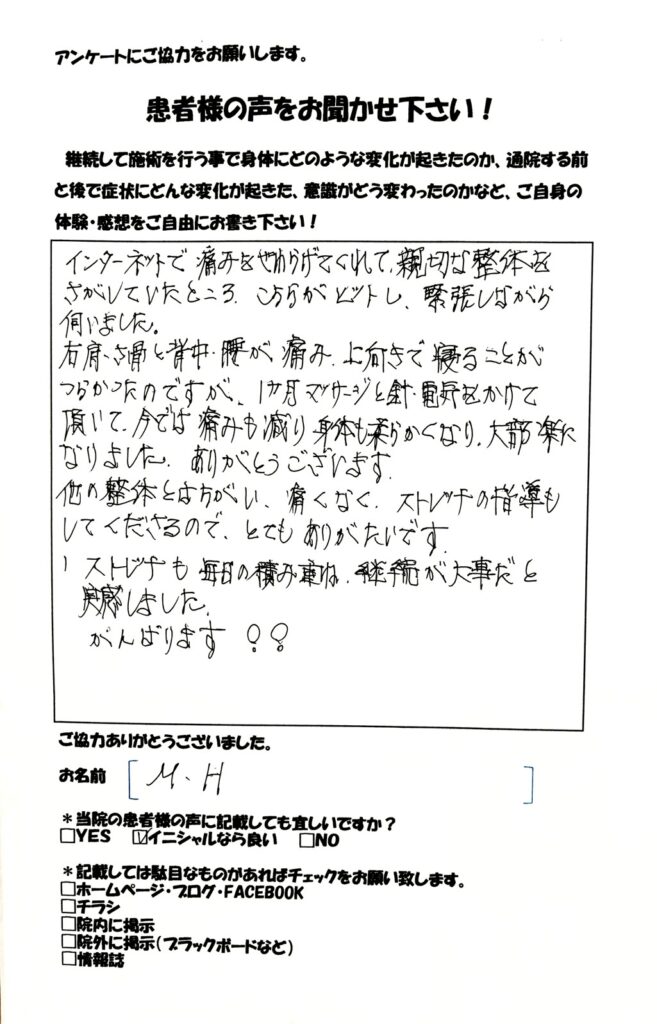 アンケートにご協力をお願いします。
患者様の声をお聞かせ下さい！
継続して施術を行う事で身体にどのような変化が起きたのか、通院する前
と後で症状にどんな変化が起きた、意識がどう変わったのかなど、ご自身の
体験・感想をご自由にお書き下さい！
インターネットで痛みをやわらげてくれて、親切な整体を
さがしていたところ、こちらがヒットし、緊張しながら
伺いました。
右肩、と背中・腰が痛み、上向きで寝ることが
つらかったのですが、1ヶ月マッサージと針・電気をかけて
頂いて、今では痛みも減り身体も柔らかくなり、大部楽に
なりました。ありがとうございます。
他の整体とはちがい、痛くなく、ストレッチの指導も
してくださるので、とてもありがたいです。
ストレッチも毎日の積み重ね、継続が大事だと
実感しました。
がんばります！！
ご協力ありがとうございました。
お名前 [ M.H ]
＊当院の患者様の声に記載しても宜しいですか？
□YES ☑イニシャルなら良い □NO
＊記載しては駄目なものがあればチェックをお願い致します。
□ホームページ・ブログ・FACEBOOK
□チラシ
□院内に掲示
□院外に掲示（ブラックボードなど）
□情報誌